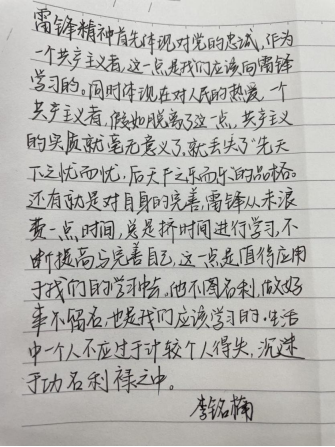 雷锋精神首先体现对党的忠诚,作为
一个共产主义者,这一点是我们应该向雷锋
学习的。同时体现在对人民的热爱,一个
共产主义者,假如脱离了这一点,共产主义
的实质就毫无意义了,就丢失了“先天
下之忧而忧,后天下之乐而乐”的品格。
还有就是对自身的完善,雷锋从未浪
费一点时间,总是挤时间进行学习,不
断提高与完善自己,这一点是值得应用
于我们的学习中去。他不图名利,做好
事不留名,也是我们应该学习的。生活
中一个人不应过于计较个人得失,沉迷
于功名利禄之中。
李铭楠